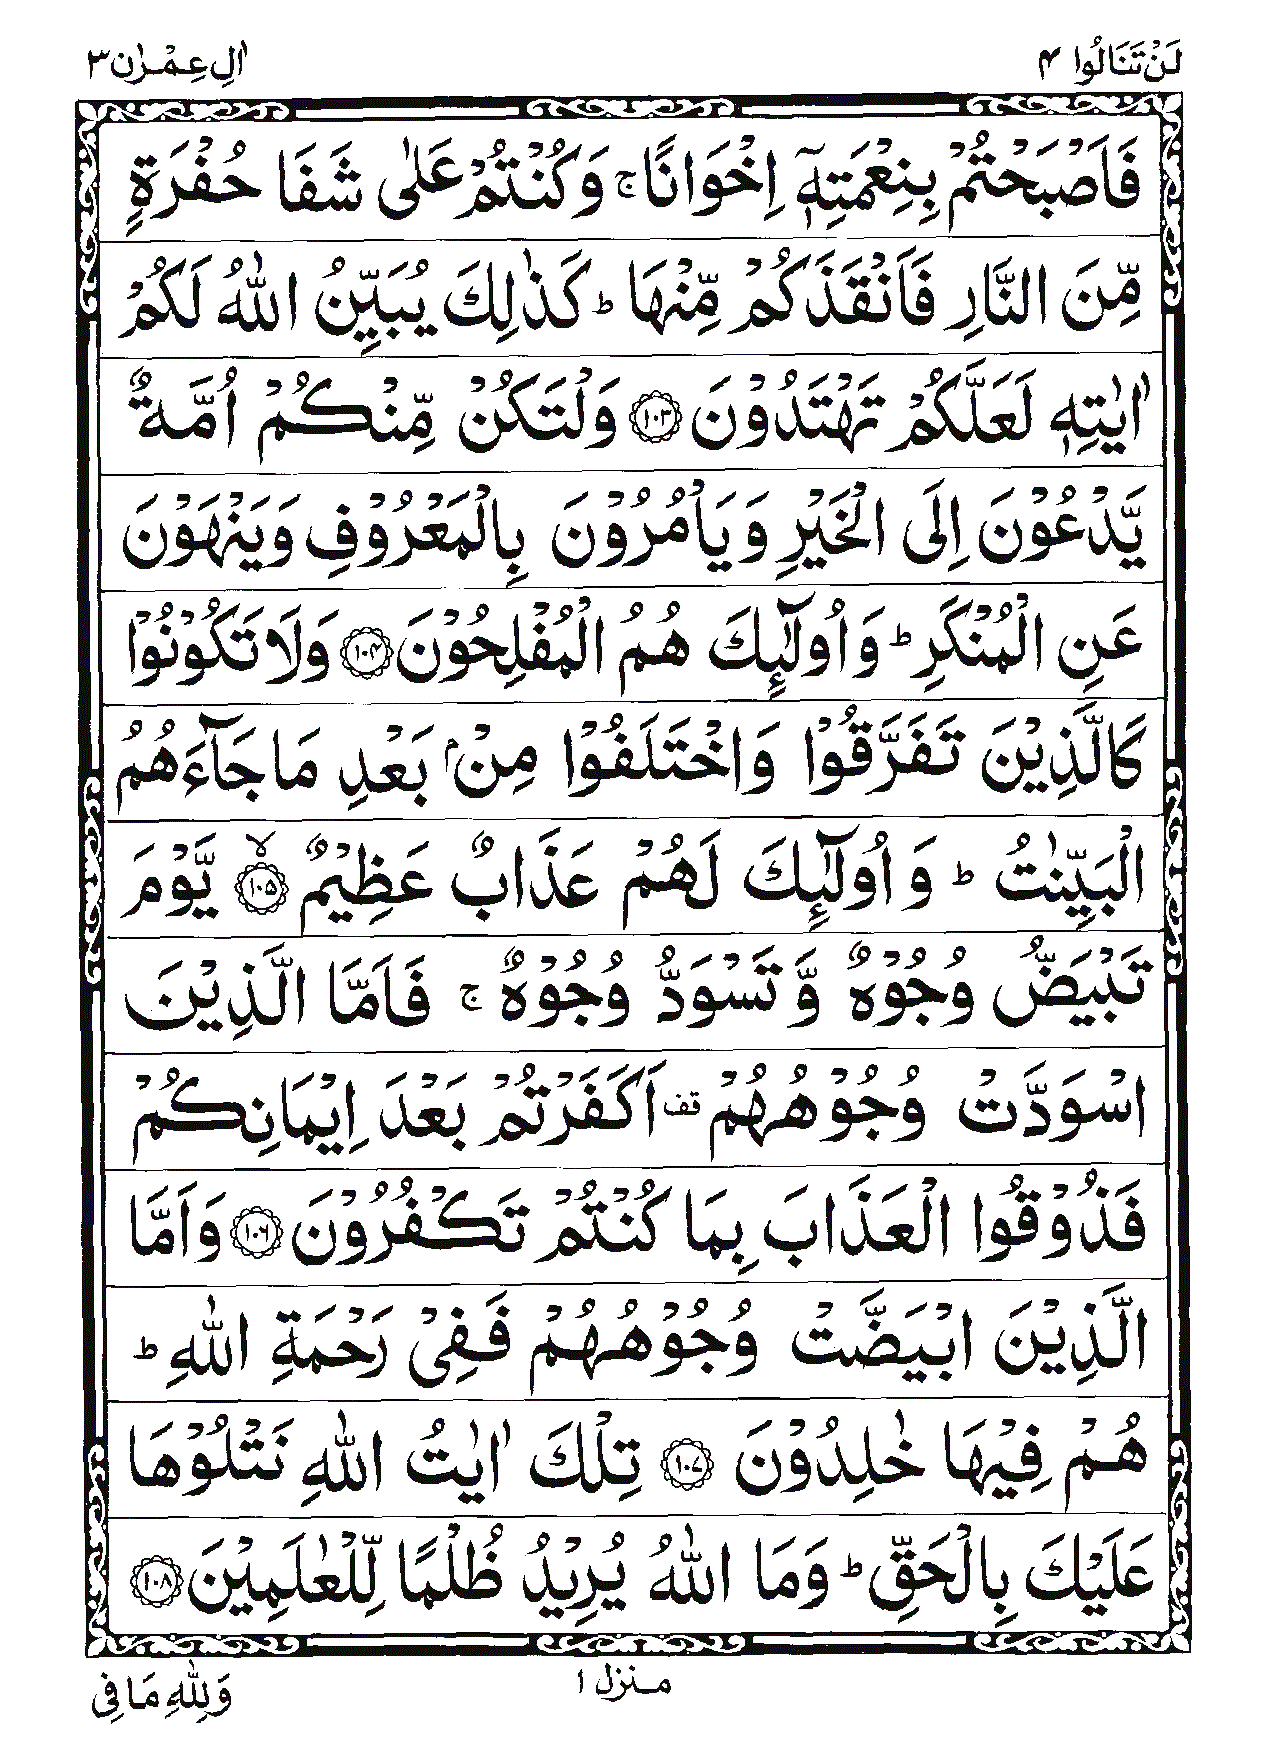 لَنْ تَنَالُوا ۴
اٰلِ عِمْرٰن ۳
فَاَصْبَحْتُمْ بِنِعْمَتِهٖٓ اِخْوَانًا ۚ وَكُنْتُمْ عَلٰى شَفَا حُفْرَةٍ
مِّنَ النَّارِ فَاَنْقَذَكُمْ مِّنْهَا ؕ كَذٰلِكَ يُبَيِّنُ اللّٰهُ لَكُمْ
اٰيٰتِهٖ لَعَلَّكُمْ تَهْتَدُوْنَ ۝۱۰۳ وَلْتَكُنْ مِّنْكُمْ اُمَّةٌ
يَّدْعُوْنَ اِلَى الْخَيْرِ وَيَاْمُرُوْنَ بِالْمَعْرُوْفِ وَيَنْهَوْنَ
عَنِ الْمُنْكَرِ ؕ وَاُولٰٓئِكَ هُمُ الْمُفْلِحُوْنَ ۝۱۰۴ وَلَا تَكُوْنُوْا
كَالَّذِيْنَ تَفَرَّقُوْا وَاخْتَلَفُوْا مِنْۢ بَعْدِ مَا جَآءَهُمُ
الْبَيِّنٰتُ ؕ وَاُولٰٓئِكَ لَهُمْ عَذَابٌ عَظِيْمٌ ۝۱۰۵ۙ يَّوْمَ
تَبْيَضُّ وُجُوْهٌ وَّتَسْوَدُّ وُجُوْهٌ ۚ فَاَمَّا الَّذِيْنَ
اسْوَدَّتْ وُجُوْهُهُمْ قف اَكَفَرْتُمْ بَعْدَ اِيْمَانِكُمْ
فَذُوْقُوا الْعَذَابَ بِمَا كُنْتُمْ تَكْفُرُوْنَ ۝۱۰۶ وَاَمَّا
الَّذِيْنَ ابْيَضَّتْ وُجُوْهُهُمْ فَفِيْ رَحْمَةِ اللّٰهِ ؕ
هُمْ فِيْهَا خٰلِدُوْنَ ۝۱۰۷ تِلْكَ اٰيٰتُ اللّٰهِ نَتْلُوْهَا
عَلَيْكَ بِالْحَقِّ ؕ وَمَا اللّٰهُ يُرِيْدُ ظُلْمًا لِّلْعٰلَمِيْنَ ۝۱۰۸
منزل ۱
وَلِلّٰهِ مَا فِى